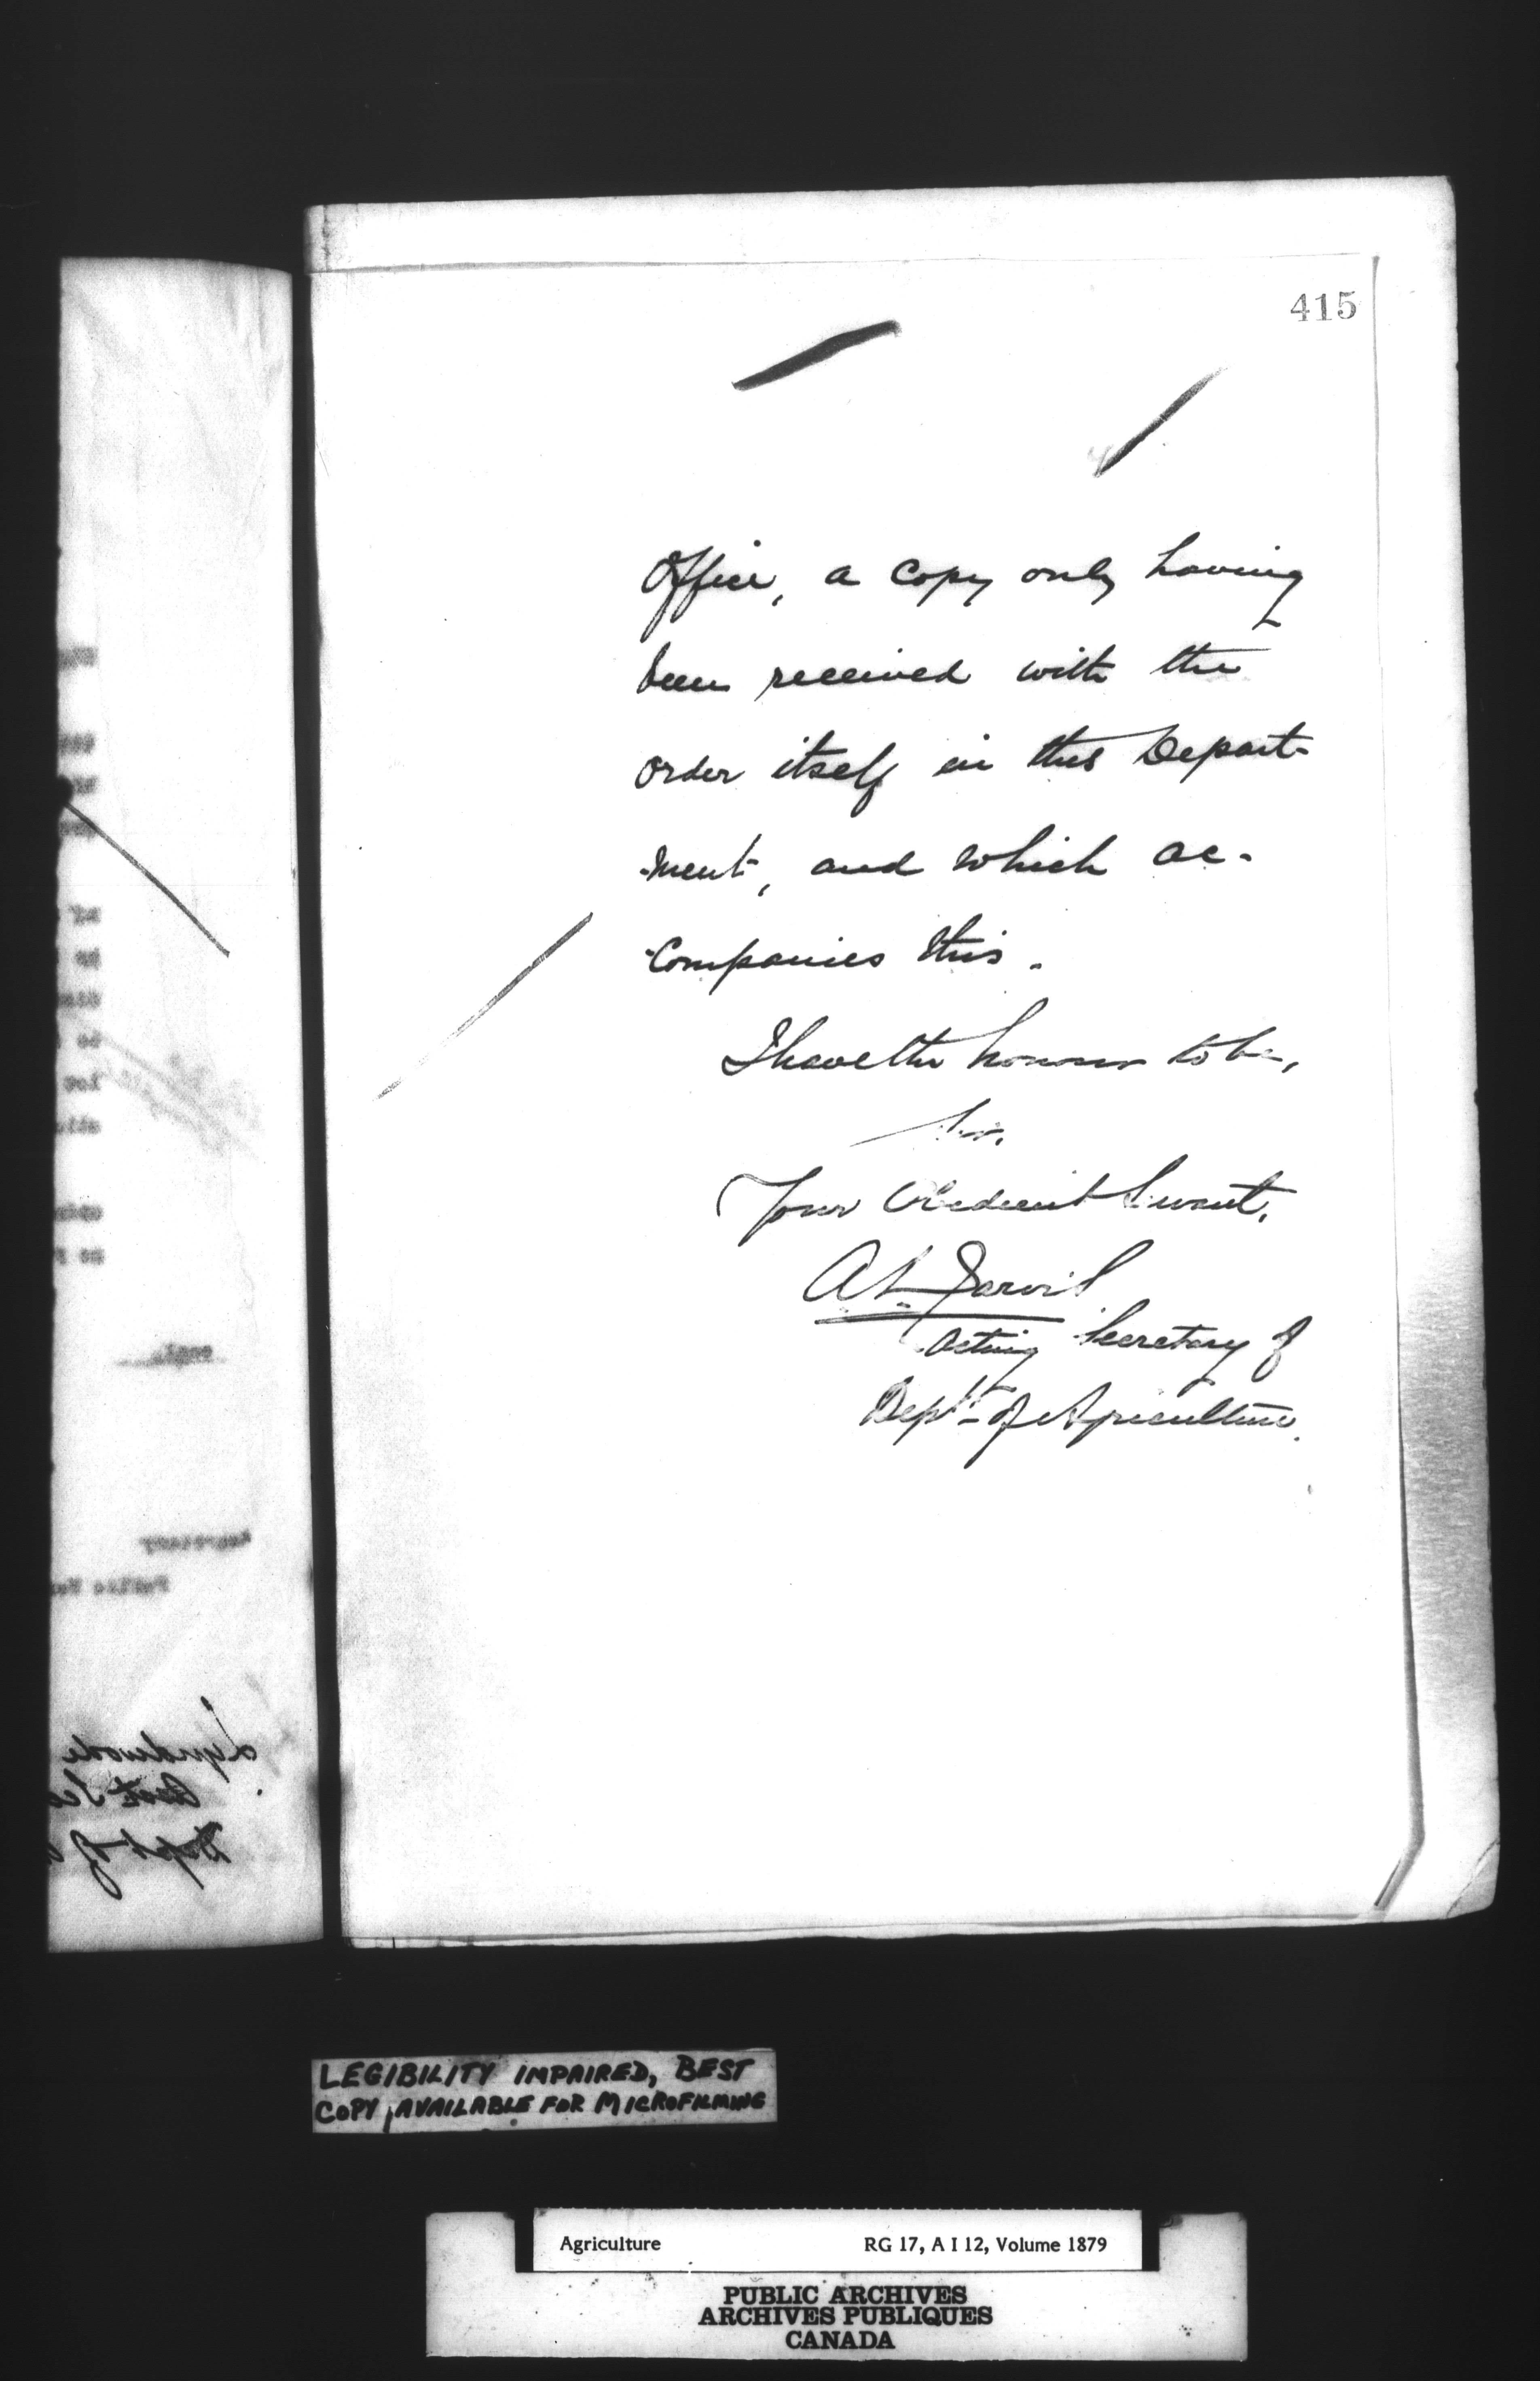 415
Office, a copy only having
been received with the
order itself in this Depart-
-ment, and which ac-
-companies this.
I have the honour to be,
Sir,
Your Obedient Servant,
A. L. Jarvis
Acting Secretary of
Dept. of Agriculture.
Secretary
Public
Dept of
LEGIBILITY IMPAIRED, BEST
COPY AVAILABLE FOR MICROFILMING
Agriculture RG 17, A I 12, Volume 1879
PUBLIC ARCHIVES
ARCHIVES PUBLIQUES
CANADA